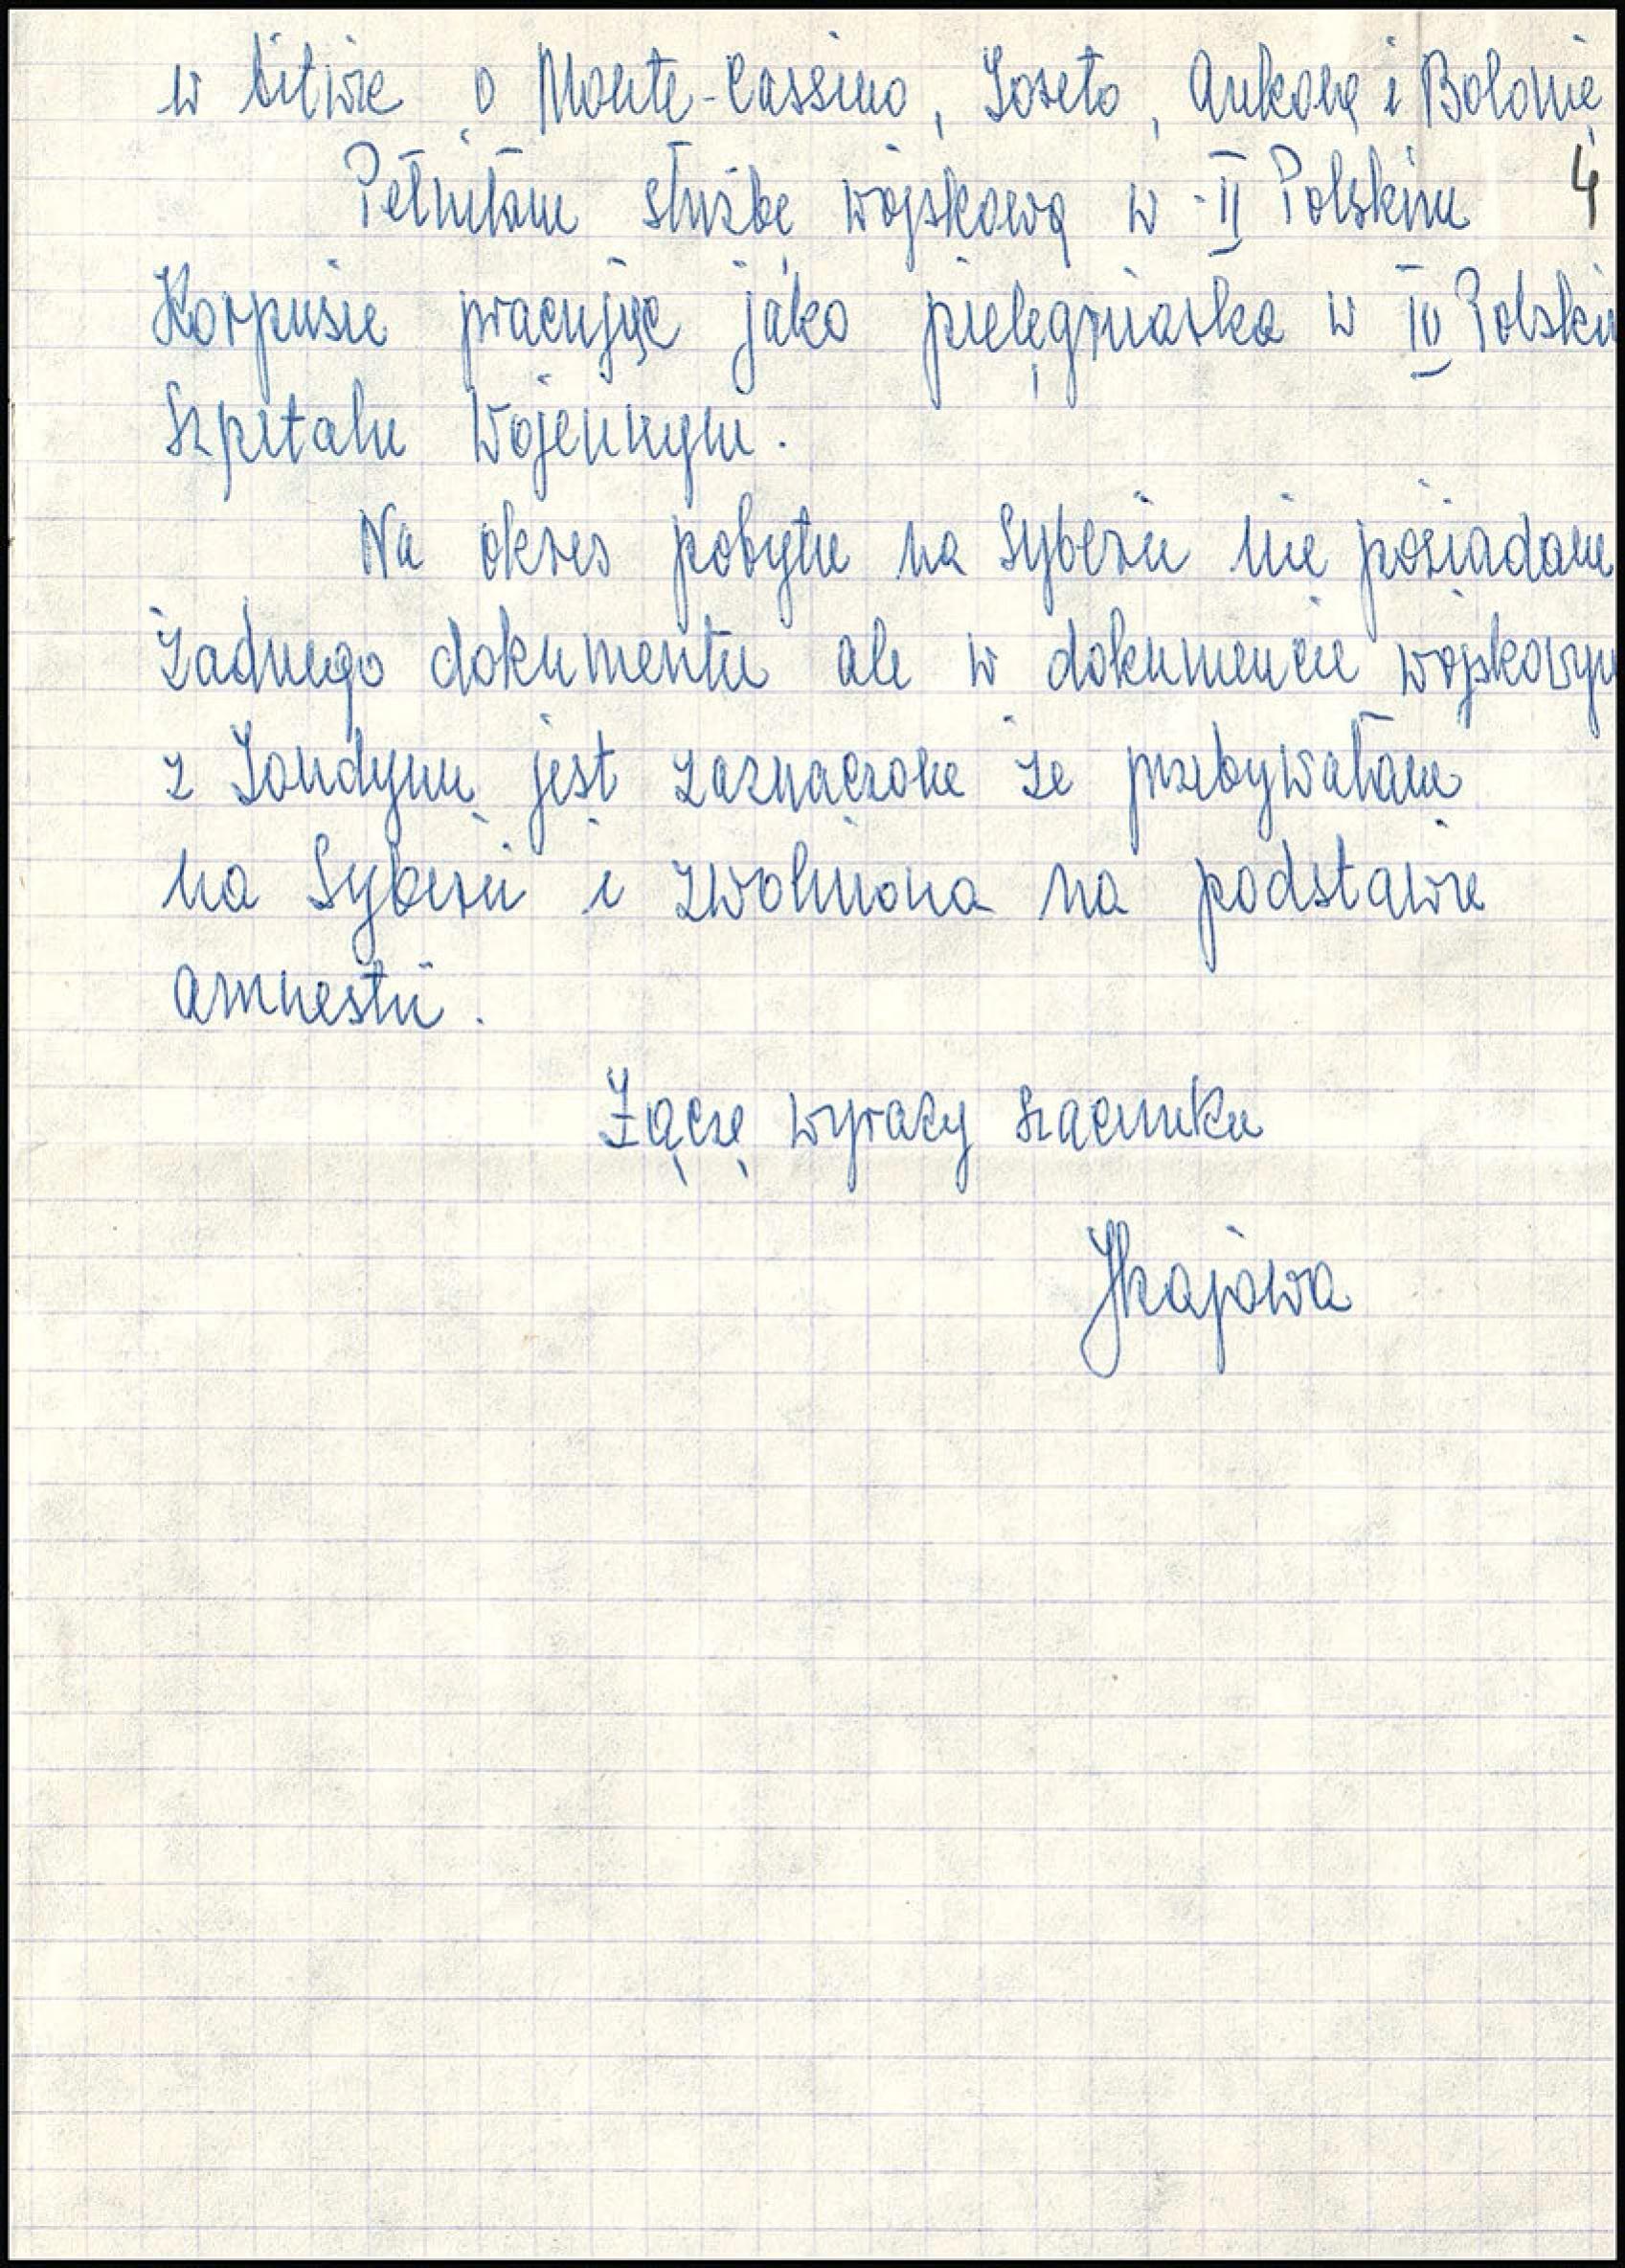 w bitwie o Monte-Cassino, Loreto, Ankonę i Bolonię
Pełniłam służbę wojskową w II Polskim 4
Korpusie pracując jako pielęgniarka w IV Polski
Szpitalu Wojennym.
Na okres pobytu na Syberii nie posiadam
żadnego dokumentu ale w dokumencie wojskowym
z Londynu jest zaznaczone że przebywałam
na Syberii i zwolniona na podstawie
amnestii.
Łączę wyrazy szacunku